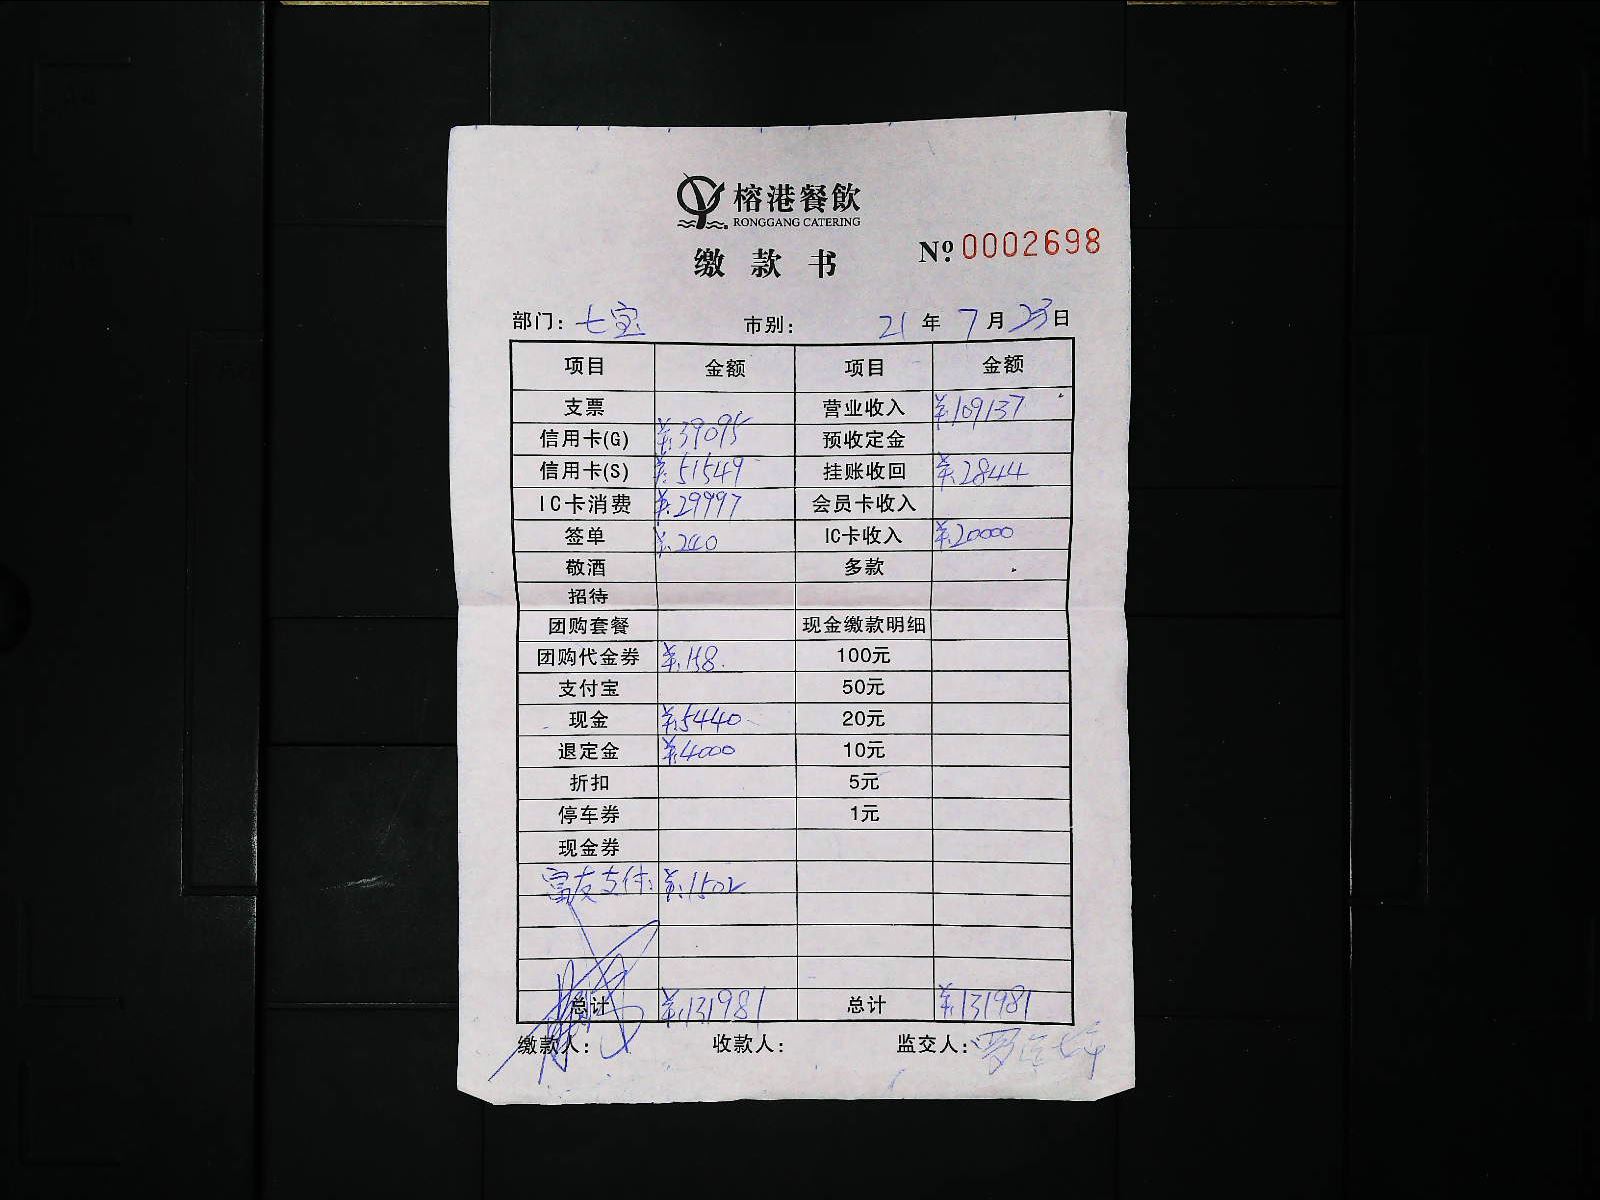 榕港餐飲
RONGGANG CATERING
缴款书
Nº 0002698
部门：七宝 市别： 21年7月23日
项目 金额 项目 金额
支票 营业收入 ¥:109137
信用卡(G) ¥:39095 预收定金
信用卡(S) ¥:51549 挂账收回 ¥:2844
IC卡消费 ¥:29997 会员卡收入
签单 ¥:240 IC卡收入 ¥:20000
敬酒 多款
招待
团购套餐 现金缴款明细
团购代金券 ¥:158. 100元
支付宝 50元
现金 ¥:5440 20元
退定金 ¥:4000 10元
折扣 5元
停车券 1元
现金券
富友支付: ¥:1502
总计 ¥:131981 总计 ¥:131981
缴款人： 收款人： 监交人：